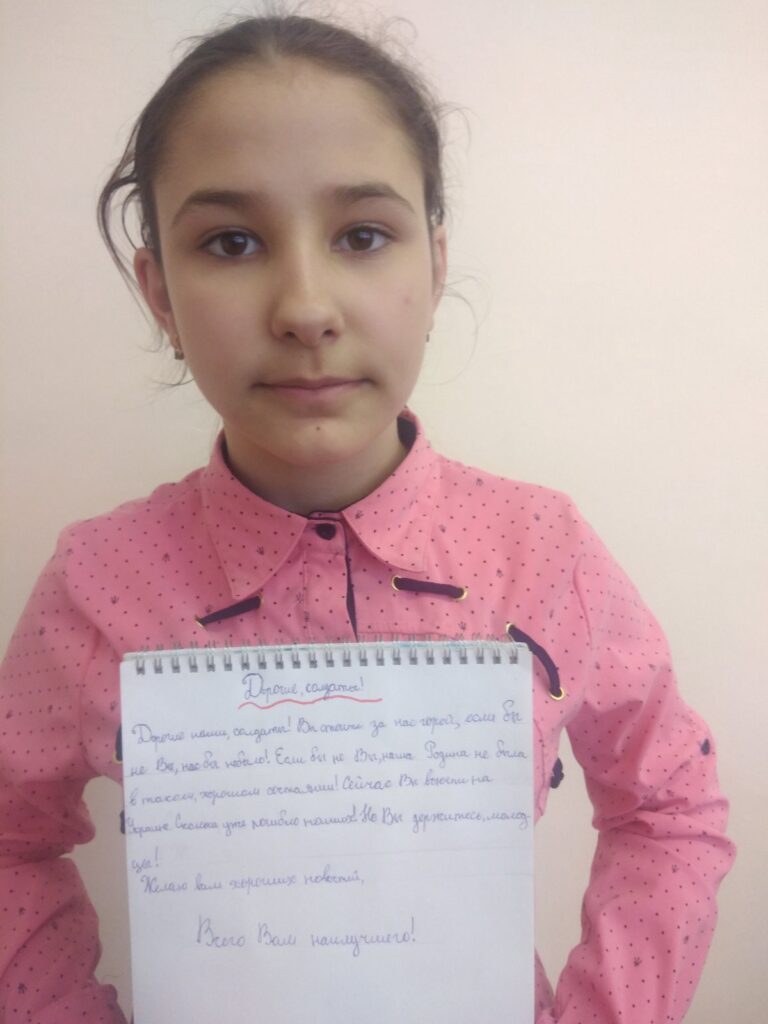 Дорогие, солдаты!
Дорогие наши, солдаты! Вы стоите за нас горой, если бы
не Вы, нас бы небыло! Если бы не Вы, наша Родина не была
в таком, хорошом состоянии! Сейчас Вы воюете на
Украине. Сколько уже погибло наших! Но Вы держитесь, молод-
цы!
Желаю вам хороших новостей,
Всего Вам наилучшего!